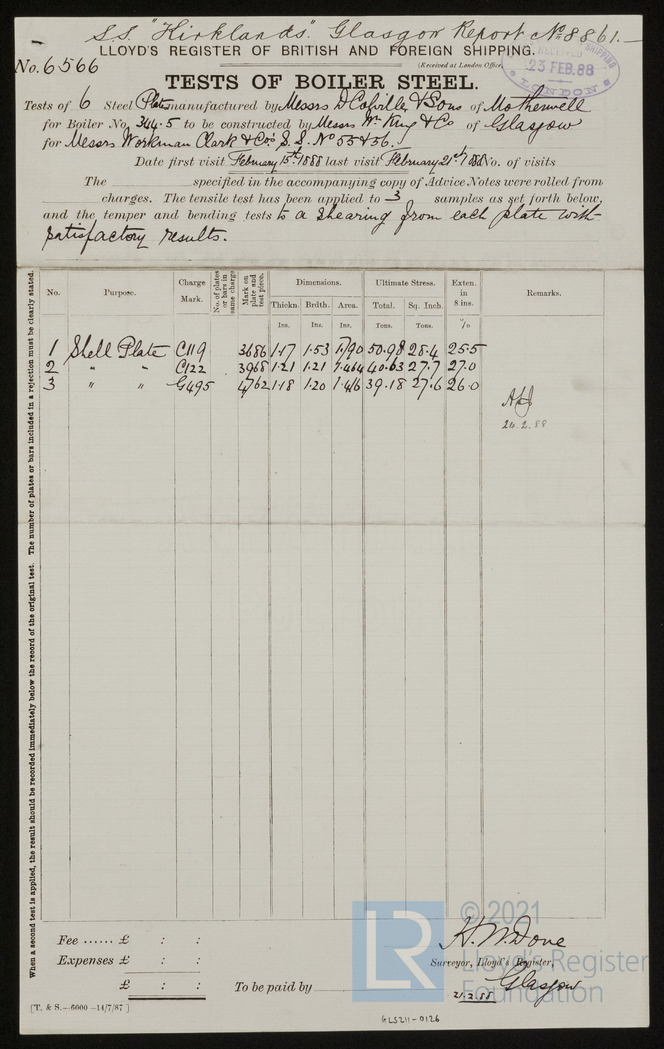 S.S. "Kirklands". Glasgow Report No 8861.
LLOYD'S REGISTER OF BRITISH AND FOREIGN SHIPPING.
No. 6566
(Received at London Office
RECEIVED SHIPPING
23 FEB. 88
LONDON
TESTS OF BOILER STEEL.
Tests of 6 Steel Plates manufactured by Messrs D Colville & Sons of Motherwell
for Boiler No. 344.5 to be constructed by Messrs Wm King & Co of Glasgow
for Messrs Workman Clark & Co's S.S. Nos 55 & 56.
Date first visit February 15th 1888 last visit February 21st / 88 No. of visits
The specified in the accompanying copy of Advice Notes were rolled from
charges. The tensile test has been applied to 3 samples as set forth below,
and the temper and bending tests to a shearing from each plate with
satisfactory results.
When a second test is applied, the result should be recorded immediately below the record of the original test. The number of plates or bars included in a rejection must be clearly stated.
No. Purpose. Charge Mark. No. of plates or bars in same charge Mark on plate and test piece. Dimensions. Ultimate Stress. Exten. in 8 ins. Remarks.
Thickn. Brdth. Area. Total. Sq. Inch.
Ins. Ins. Ins. Tons. Tons. %
1 Shell Plate C119 3686 1.17 1.53 1.790 50.98 28.4 25.5
2 " " C122 3968 1.21 1.21 1.464 40.63 27.7 27.0
3 " " G495 4762 1.18 1.20 1.416 39.18 27.6 26.0
24.2.88
Fee ...... £ : :
Expenses £ : :
£ : :
To be paid by
H. W. Dove
Surveyor, Lloyd's Register,
Glasgow
21.2.88
[T. & S.—6000 –14/7/87 ]
GLS211-0126
LR
© 2021
Lloyd's Register
Foundation